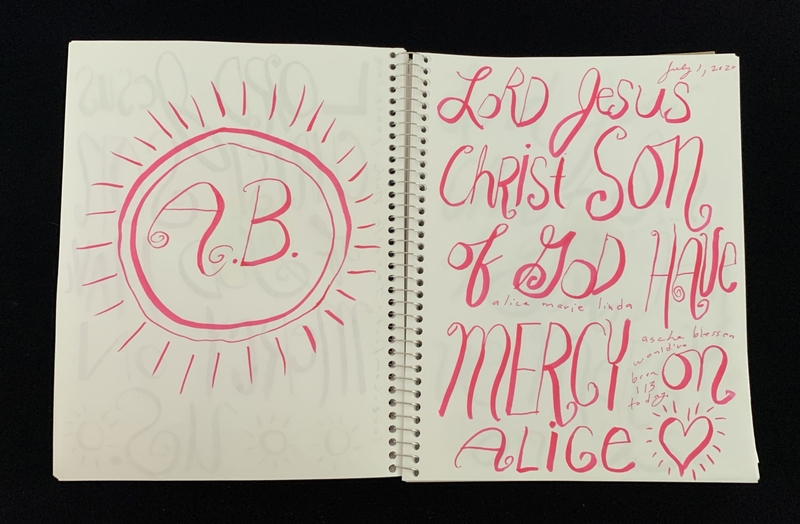 A.B.
July 1, 2020
LORD Jesus
Christ SON
of GOD HAVE
alice marie linda
MERCY on
ascha blessen
would've
been
113
today.
ALICE